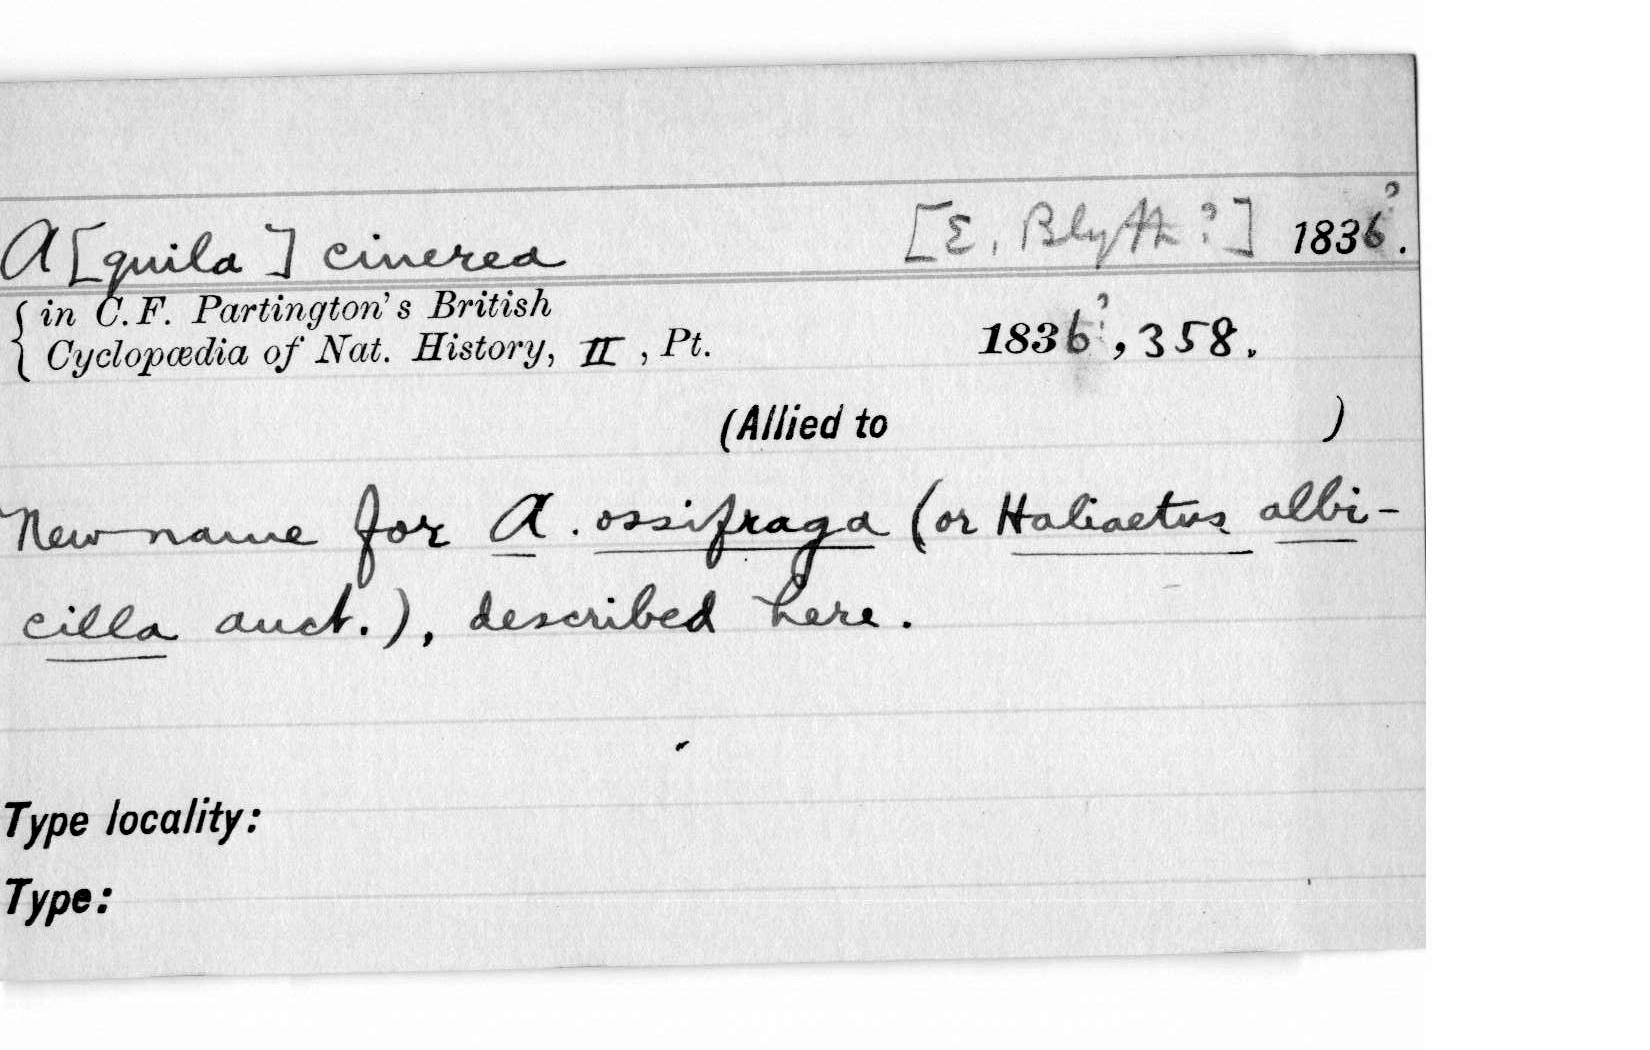 A[quila] cinerea [E. Blyth?] 1836?.
{in C.F. Partington's British
Cyclopædia of Nat. History, II, Pt. 1836?, 358.
(Allied to )
New name for A. ossifraga (or Haliaetus albi-
cilla auct.), described here.
Type locality:
Type: